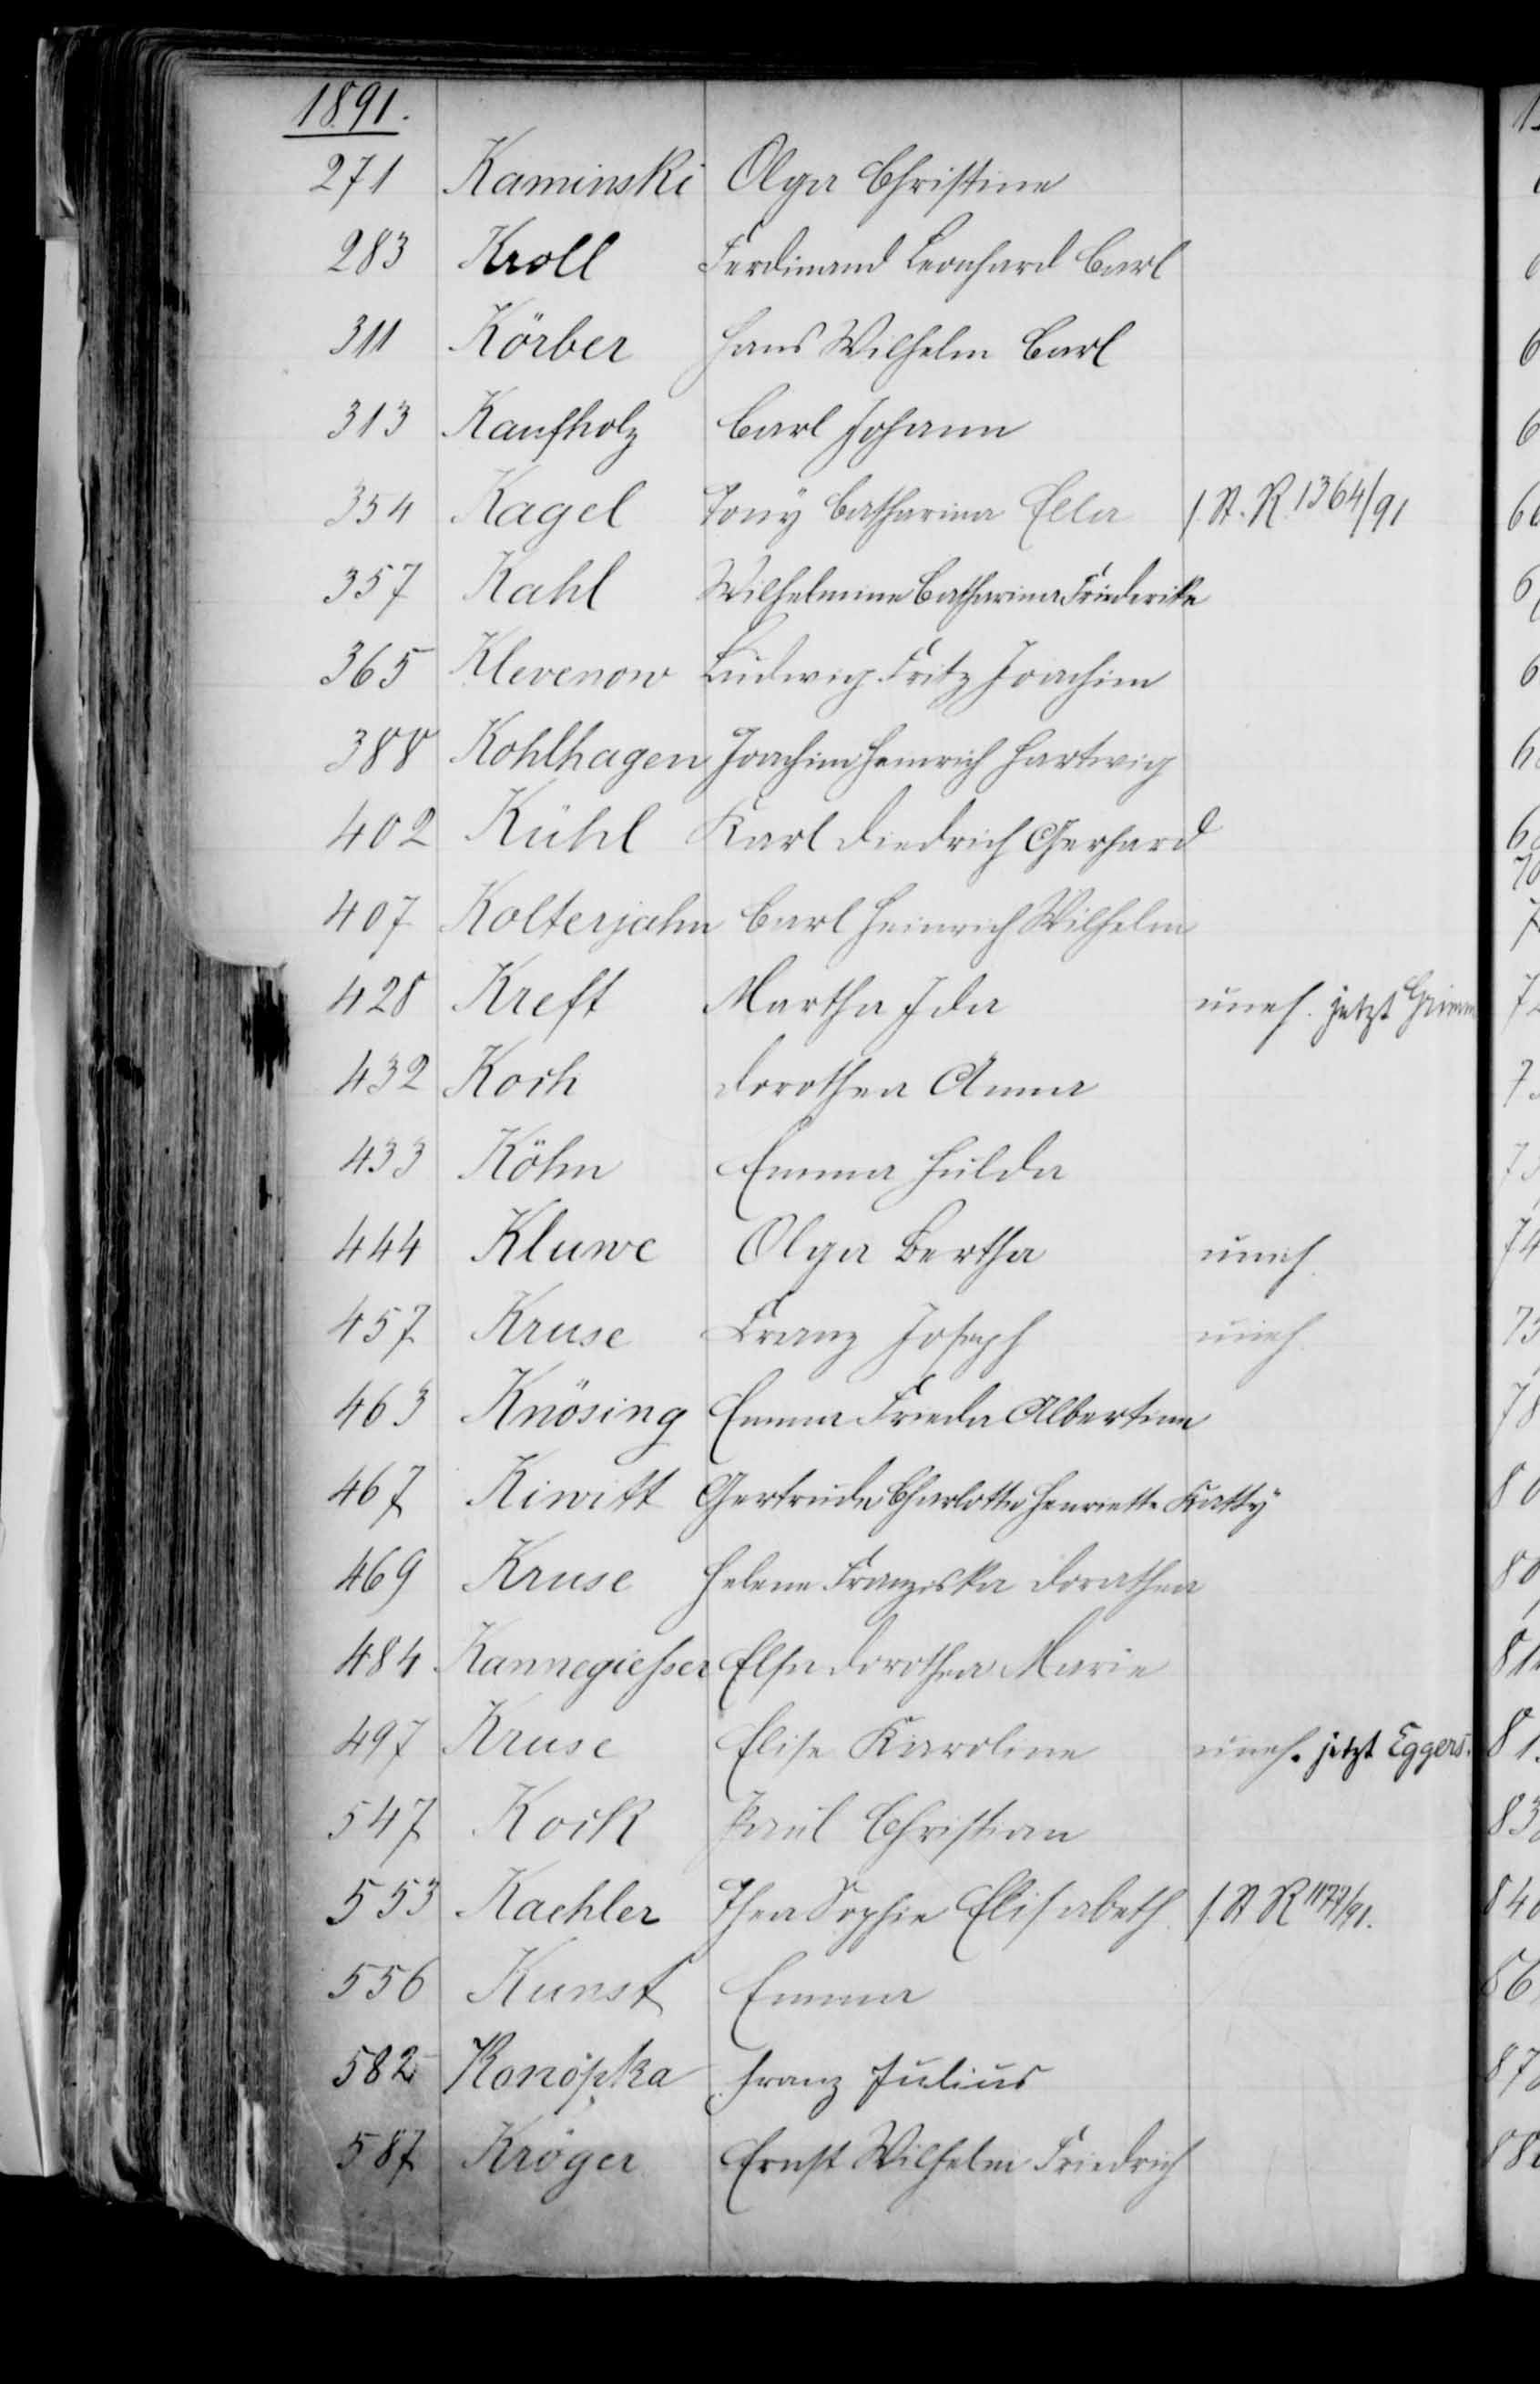 1891.
271 Kaminski Olga Christine
283 Kroll Ferdinand Leonhard Carl
311 Körber Hans Wilhelm Carl
313 Kaufholz Carl Johann
354 Kagel Tony Catharina Ella f. St. R. 1364/91
357 Kahl Wilhelmine Catharina Friederike
365 Klevenow Ludwig Fritz Joachim
388 Kohlhagen Joachim Heinrich Hartwig
402 Kühl Karl Diedrich Gerhard
407 Kolterjahn Carl Heinrich Wilhelm
428 Kreft Martha Ida uneh. jetzt Grimm
432 Koch Dorothea Anna
433 Köhn Emma Hulda
444 Kluwe Olga Bertha uneh.
457 Kruse Franz Joseph uneh.
463 Knösing Emma Frieda Albertine
467 Kiwitt Gertrude Charlotte Henriette Katty
469 Kruse Helene Franziska Dorathea
484 Kannegießer Elsa Dorothea Marie
497 Kruse Elise Karoline uneh. jetzt Eggers.
547 Kock Paul Christian
553 Kaehler Thea Sophie Elisabeth f. St R 1177/91.
556 Kunst Emma
582 Konopka Franz Julius
587 Kröger Ernst Wilhelm Friedrich